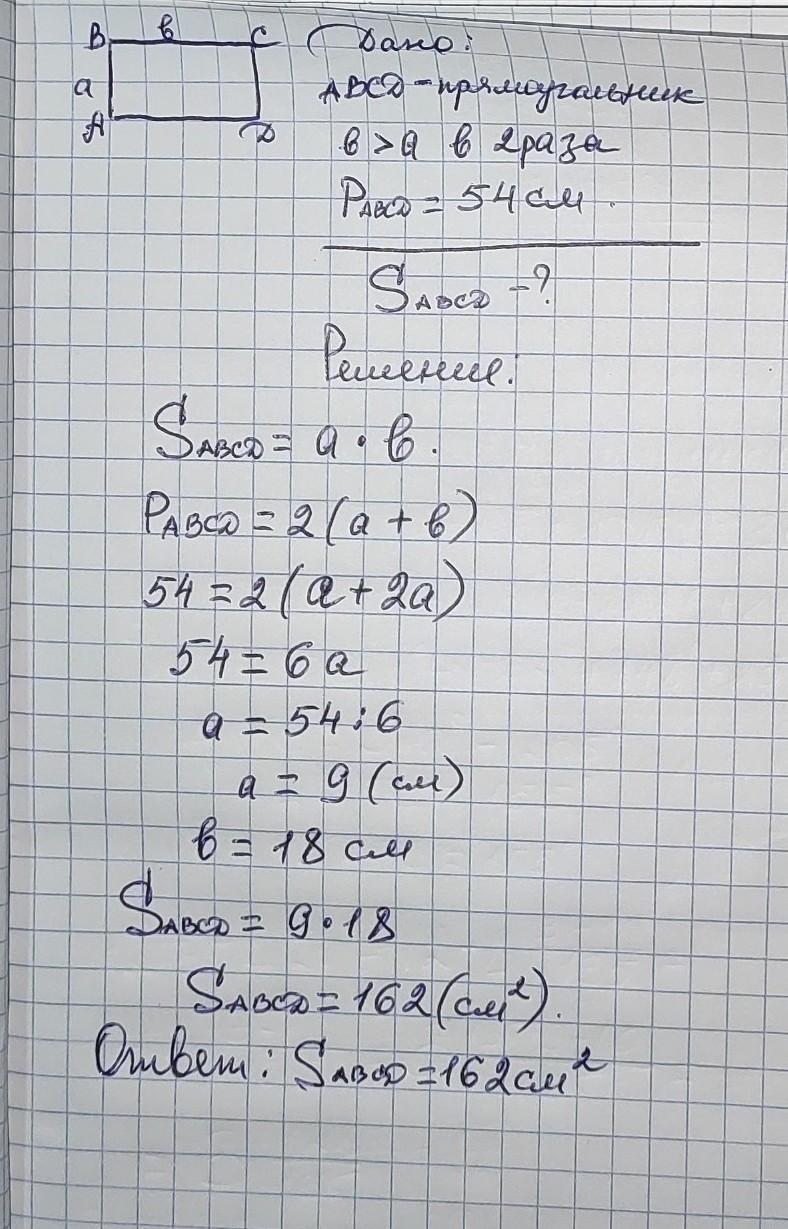 B в C
a
A D
Дано:
ABCD - прямоугольник
в > a в 2 раза
PABCD = 54 см.
SABCD - ?
Решение:
SABCD = a · в.
PABCD = 2 (a + в)
54 = 2 (a + 2a)
54 = 6 a
a = 54 : 6
a = 9 (см)
в = 18 см
SABCD = 9 · 18
SABCD = 162 (см²).
Ответ: SABCD = 162 см²